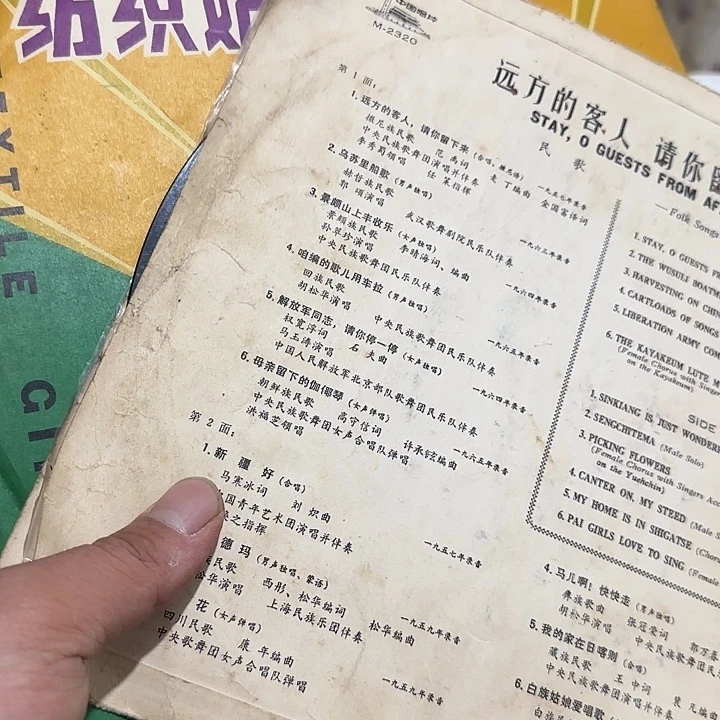 纺织姑
TEXTILE
GI
中国唱片
M-2320
远方的客人 请你留
STAY, O GUESTS FROM AF
民 歌
第1面:
1. 远方的客人,请你留下来(合唱、撒尼语)
撒尼族民歌 范禹词 麦丁编曲 金国富译词
中央民族歌舞团演唱并伴奏 一九五七年录音
李秀蜀领唱 任策指挥
2. 乌苏里船歌(男声独唱)
赫哲族民歌 武汉歌舞剧院民乐队伴奏
郭颂演唱 一九六三年录音
3. 景颇山上丰收乐(女声独唱)
景颇族民歌 李晴海词、编曲
孙翠珍演唱 一九六四年录音
中央民族歌舞团民乐队伴奏
4. 咱编的歌儿用车拉(男声独唱)
回族民歌 中央民族歌舞团民乐队伴奏
胡松华演唱 一九六五年录音
5. 解放军同志,请你停一停(女声独唱)
权宽浮词 石夫曲
马玉涛演唱 一九六四年录音
中国人民解放军北京部队歌舞团民乐队伴奏
6. 母亲留下的伽倻琴(女声弹唱)
朝鲜族民歌 高守信词 许承铉编曲
中央民族歌舞团女声合唱队弹唱
洪福芝领唱 一九六五年录音
第2面:
1. 新疆好(合唱)
马寒冰词 刘炽曲
国青年艺术团演唱并伴奏
之指挥 一九五七年录音
德玛(男声独唱、蒙语)
民歌 西彤、松华编词 松华编曲
松华演唱 上海民族乐团伴奏
一九五九年录音
花(女声弹唱)
四川民歌 康年编曲
中央歌舞团女声合唱队弹唱
一九五九年录音
—Folk Songs
1. STAY, O GUESTS F
2. THE WUSULI BOATM
3. HARVESTING ON CHI
4. CARTLOADS OF SONGS
5. LIBERATION ARMY COM
6. THE KAYAKEUM LUTE M
(Female Chorus with Singe
on the Kayakeum)
SIDE
1. SINKIANG IS JUST WONDER
2. SENGCHITEMA (Male Solo)
3. PICKING FLOWERS
(Female Chorus with Singers Ac
on the Yuehchin)
4. CANTER ON, MY STEED (Male S
5. MY HOME IS IN SHIGATSE (Chor
6. PAI GIRLS LOVE TO SING (Femal
4. 马儿啊!快快走(男声独唱)
彝族歌曲 张冠荣词 郭万春
胡松华演唱 中央民族歌舞团民
5. 我的家在日喀则(合唱)
藏族民歌 王中词 裴凡编曲
中央民族歌舞团演唱并伴奏
6. 白族姑娘爱唱歌
白族民歌